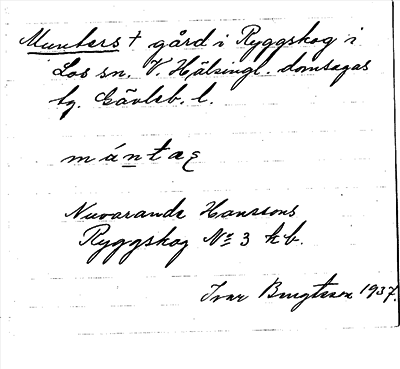 Munters † gård i Ryggskog i
Los sn. V. Hälsingl. domsagas
tg. Gävleb. l.
mántaꝛ
Nuvarande Hanssons
Ryggskog № 3 kb.
Ivar Bengtsson 1937.